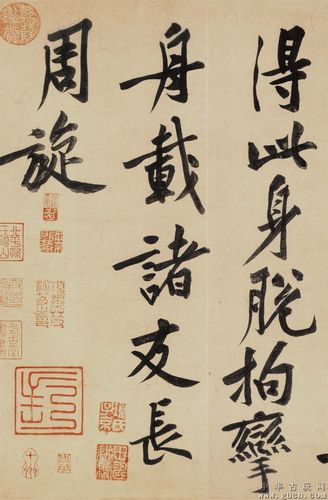 得此身脫拘攣
舟載諸友長
周旋
中华古玩网
www.gucn.com